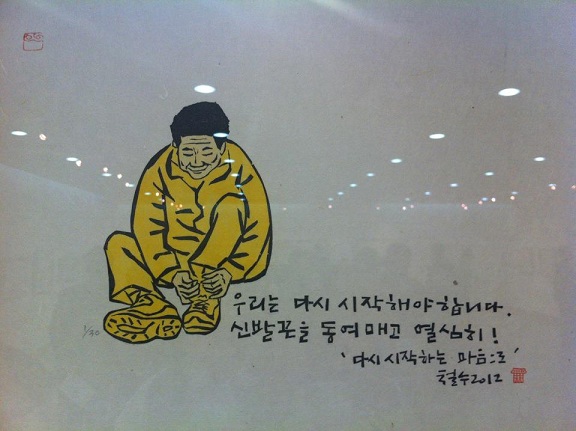 우리는 다시 시작해야 합니다.
신발끈을 동여매고 열심히!
'다시 시작하는 마음으로'
철수 2012
1/30